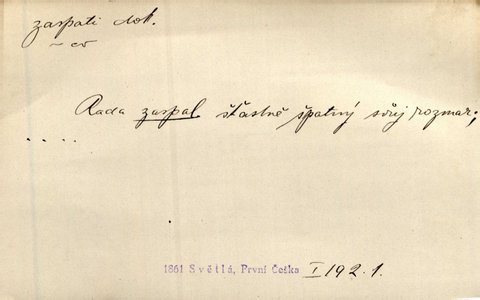 zaspati dok.
~ co
Rada zaspal šťastně špatný svůj rozmar;
. . . .
1861 Světlá, První Češka I 192.1.